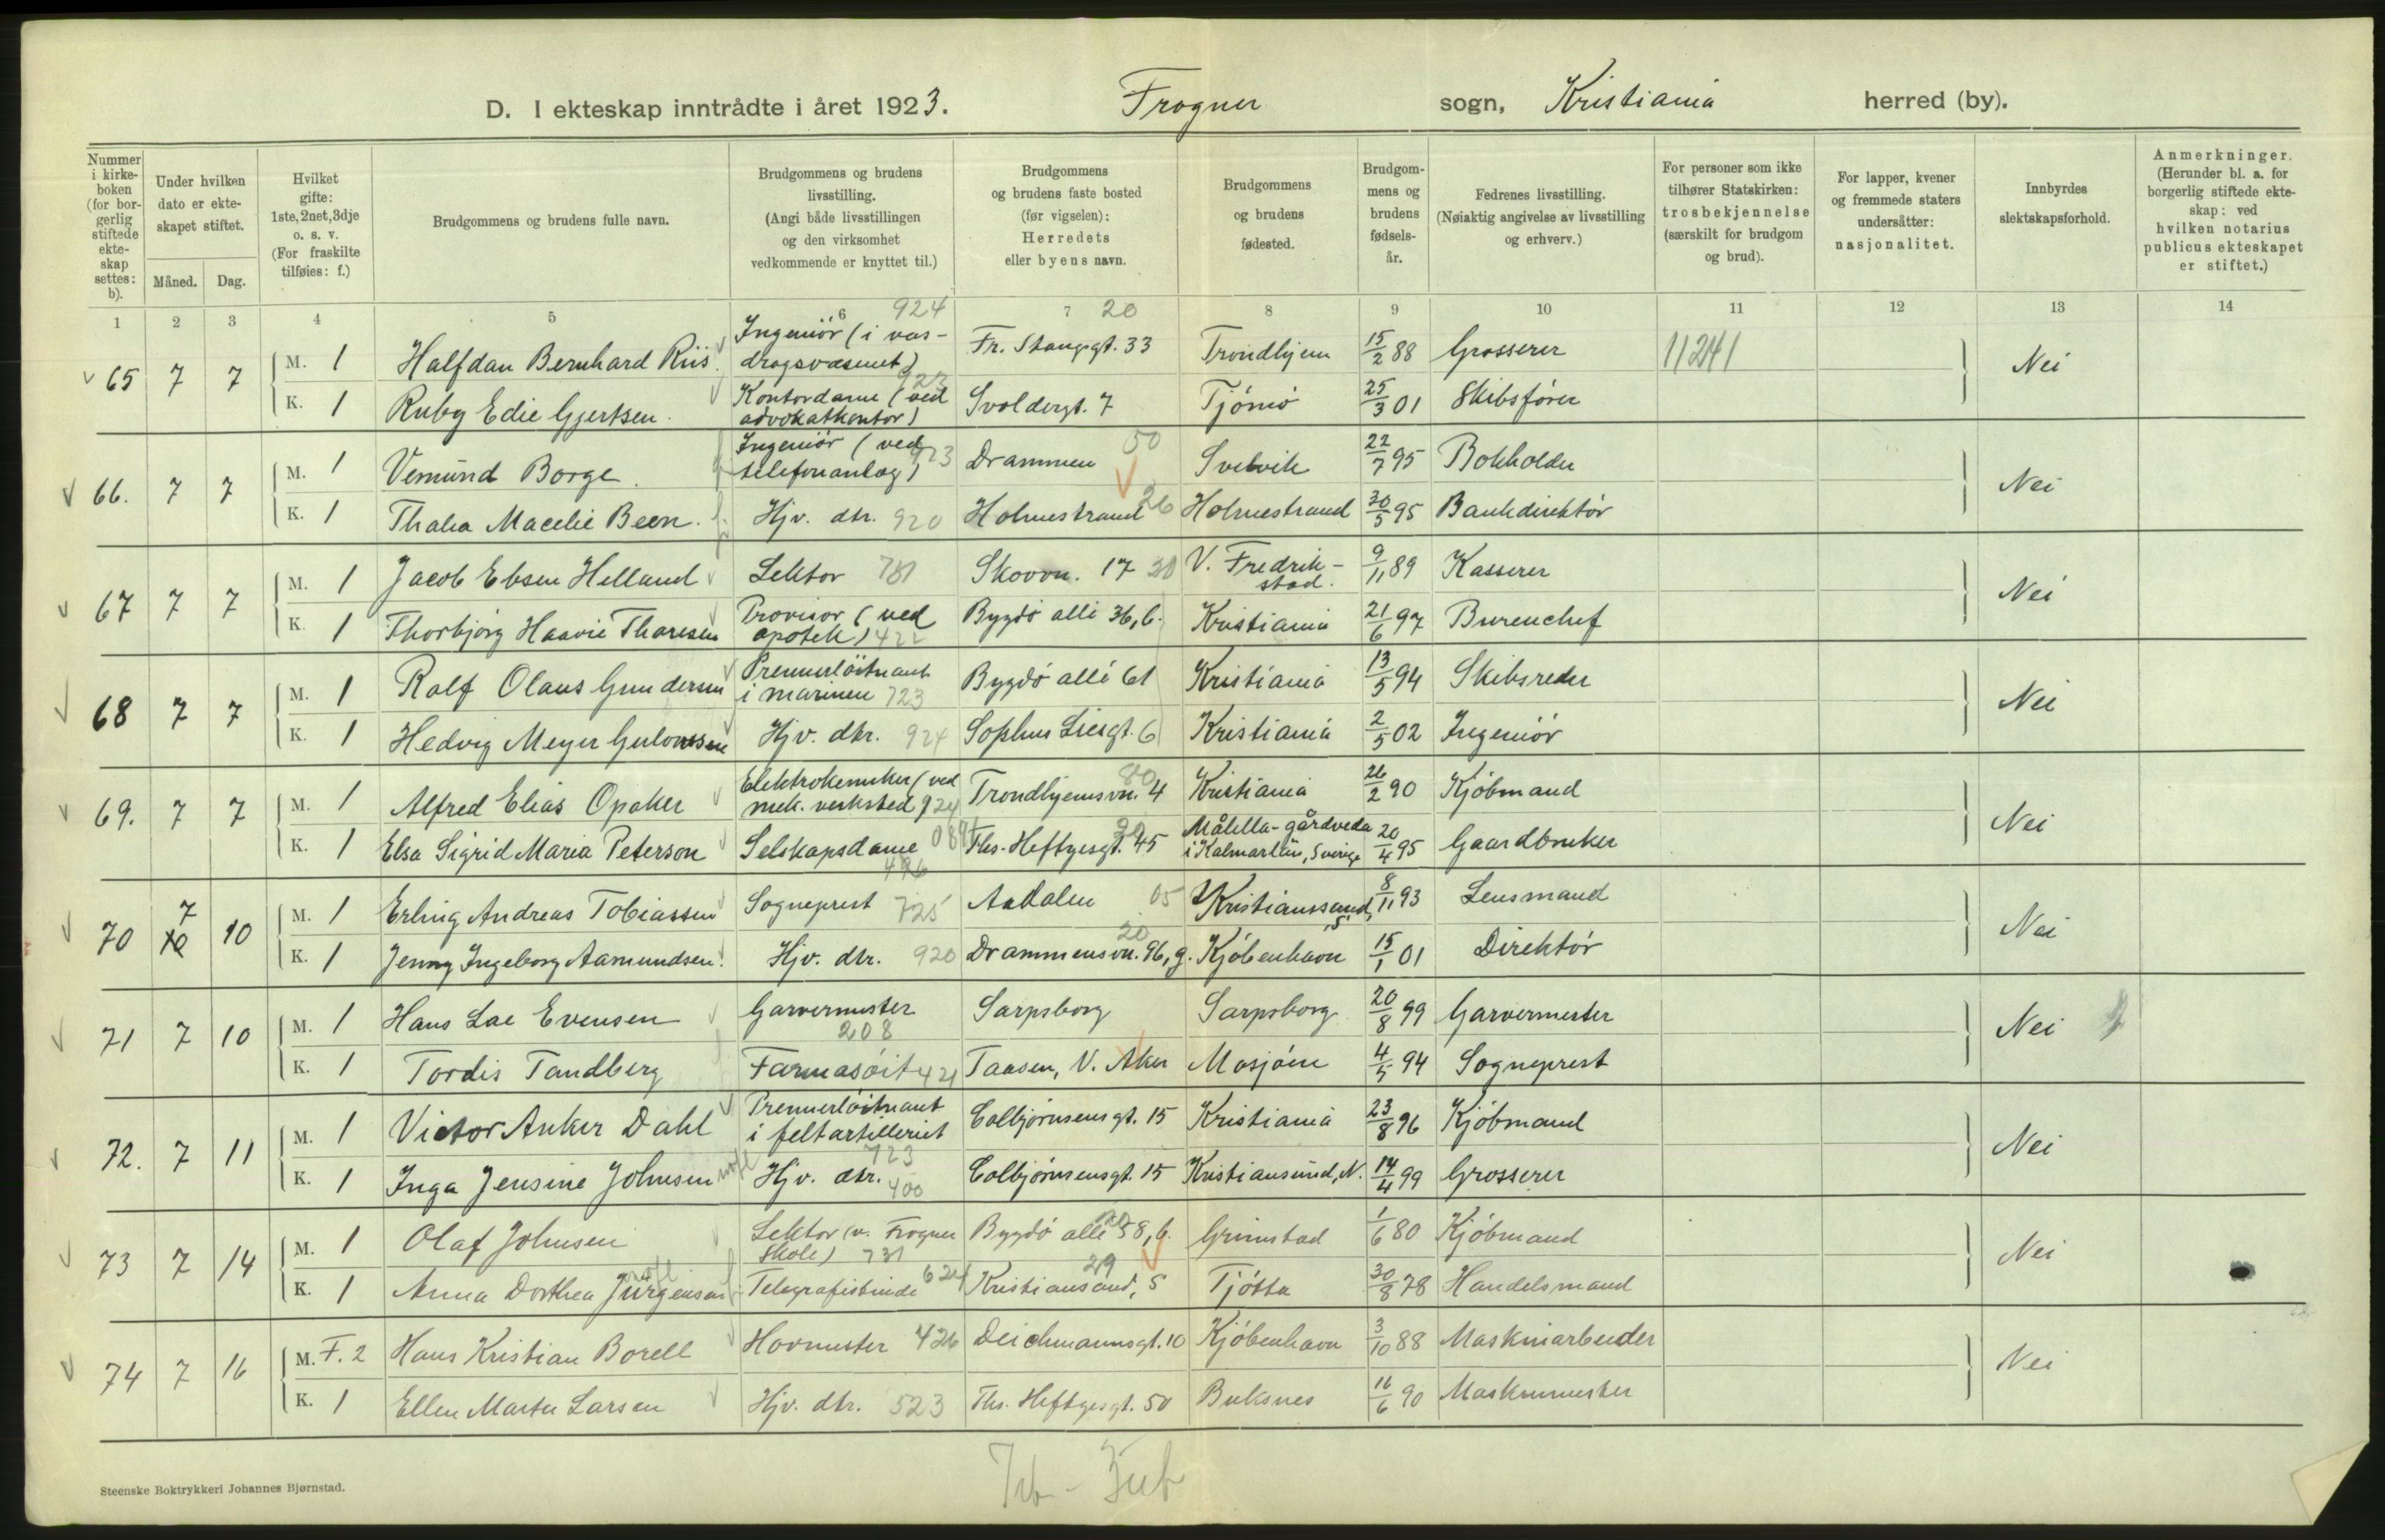 D. I ekteskap inntrådte i året 1923. Frogner sogn, Kristiania herred (by).
Nummer i kirkeboken (for borgerlig stiftede ekteskap settes: b).
Under hvilken dato er ekteskapet stiftet.
Måned. Dag.
Hvilket gifte: 1ste, 2net, 3dje o. s. v. (For fraskilte tilføies: f.)
Brudgommens og brudens fulle navn.
Brudgommens og brudens livsstilling. (Angi både livsstillingen og den virksomhet vedkommende er knyttet til.)
Brudgommens og brudens faste bosted (før vigselen): Herredets eller byens navn.
Brudgommens og brudens fødested.
Brudgommens og brudens fødselsår.
Fedrenes livsstilling. (Nøiaktig angivelse av livsstilling og erhverv.)
For personer som ikke tilhører Statskirken: trosbekjennelse (særskilt for brudgom og brud).
For lapper, kvener og fremmede staters undersåtter: nasjonalitet.
Innbyrdes slektskapsforhold.
Anmerkninger. (Herunder bl. a. for borgerlig stiftede ekteskap: ved hvilken notarius publicus ekteskapet er stiftet.)
1 2 3 4 5 6 7 8 9 10 11 12 13 14
924 20
65 7 7 M. 1 Halfdan Bernhard Riis Ingeniør (i vasdragsvæsenet) Fr. Stangsgt. 33 Trondhjem 15/2 88 Grosserer 11241 Nei
K. 1 Ruby Edie Gjertsen. Kontordame (ved advokatkontor) 923 Svoldergt. 7 Tjømø 25/3 01 Skibsfører
66. 7 7 M. 1 Vemund Borge. Ingeniør (ved telefonanlæg) 923 Drammen 50 Svelvik 22/7 95 Bokholder Nei
K. 1 Thalia Macelie Been. Hjv. dtr. 920 Holmestrand 26 Holmestrand 30/5 95 Bankdirektør
67 7 7 M. 1 Jacob Ebsen Helland Lektor 731 Skovvn. 17 20 V. Fredrikstad. 9/11 89 Kasserer Nei
K. 1 Thorbjørg Haavie Thoresen Provisor (ved apotek) 422 Bygdø allé 36, b. Kristiania 21/6 97 Bureuchef
68 7 7 M. 1 Rolf Olaus Gundersen Premierløitnant i marinen 723 Bygdø allé 61 Kristiania 13/5 94 Skibsreder Nei
K. 1 Hedvig Meyer Gulowssen Hjv. dtr. 924 Sophus Liesgt. 6 Kristiania 2/5 02 Ingeniør
69. 7 7 M. 1 Alfred Elias Opaker Elektrokemiker (ved mek. verksted) 924 Trondhjemsvn. 4 80 Kristiania 26/2 90 Kjøbmand Nei
K. 1 Elsa Sigrid Maria Peterson Selskapsdame 089 496 Ths. Heftyesgt. 45 20 Målilla-gårdveda i Kalmarlän, Sverige 20/4 95 Gaardbruker
70 7 10 M. 1 Erling Andreas Tobiassen Sogneprest 725 Aadalen 05 Kristianssand, S. 8/11 93 Lensmand Nei
K. 1 Jenny Ingeborg Aamundsen. Hjv. dtr. 920 Drammensvn. 96, g. 20 Kjøbenhavn 15/1 01 Direktør
71 7 10 M. 1 Hans Lae Evensen Garvermester 208 Sarpsborg Sarpsborg 20/8 99 Garvermester Nei
K. 1 Tordis Tandberg Farmasøit 421 Taasen, V. Aker Mosjøen 4/5 94 Sogneprest
72. 7 11 M. 1 Victor Anker Dahl Premierløitnant i feltartilleriet 723 Colbjørnsensgt. 15 Kristiania 23/8 96 Kjøbmand Nei
K. 1 Inga Jensine Johnsen Hjv. dtr. 400 Colbjørnsensgt. 15 Kristiansund, N. 14/4 99 Grosserer
73 7 14 M. 1 Olaf Johnsen Lektor (v. Frogner skole) 731 Bygdø allé 58, b. 20 Grimstad 1/6 80 Kjøbmand Nei
K. 1 Anna Dorthea Jürgensen Telegrafistinde 624 Kristiansand, S 29 Tjøtta 30/8 78 Handelsmand
74 7 16 M. F. 2 Hans Kristian Borell Hovmester 426 Deichmannsgt. 10 Kjøbenhavn 3/10 88 Maskinarbeider Nei
K. 1 Ellen Marta Larsen Hjv. dtr. 523 Ths. Heftyesgt. 50 Buksnes 16/6 90 Maskinmester
Steenske Boktrykkeri Johannes Bjørnstad.